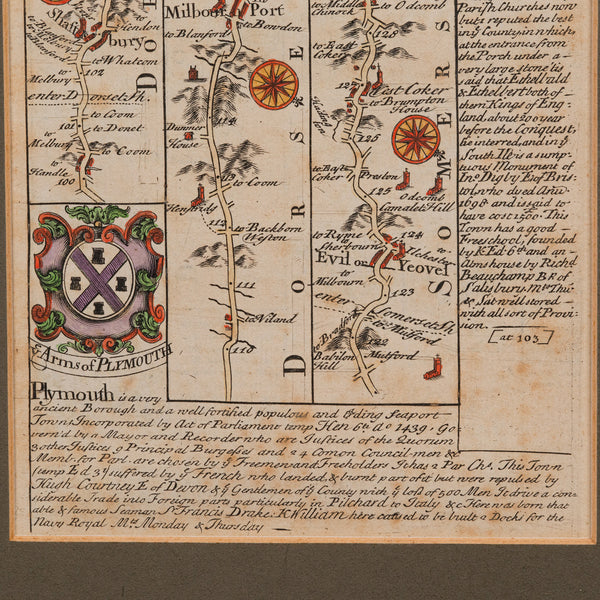 Shafts
bury
to Yendon
to Whatcom
to
Melbury
102
to
Melbury
enter Dorset Sh.
to Coom
101
to Donet
to
Melbury
to Coom
to
Handle
100
DO
Milbourn Port
to Bowdon
to Blanford
114
Dunmer
House
113
to Coom
Henstrids
112
to Backborn
Weston
111
to Niland
110
DORSE
to Middle
Chinock
to Odcomb
128
to East
Coker
127
East Coker
to Brumpton
House
to East
Coker
Preston
125
Odcomb
Camalets Hill
to Ryme
to
Sherbourn
124
to
Ilchester
Evil or Yeovel
to
Milbourn
123
enter
Somerset Sh.
to Mudford
122
Mutford
Babilon
Hill
SOMERS
Parish Churches now
but 2 reputed the best
in ye County in which
at the entrance from
the Porch under a
very large Stone lie
said that Ethelbald
& Ethelbert both of
them Kings of Eng-
land, about 200 year
before the Conquest,
lie interred, and in ye
South Ile is a sump-
tuous Monument of
Jno. Digby E. of Bris-
tol, who dyed Ano
1698 and is said to
have cost 1500. This
Town has a good
Freeschool, founded
by K. Ed. 6th. and an
Almshouse by Richd
Beauchamp Bp. of
Salisbury. Mts. Thu:
& Sat. well stored
with all sort of Provi-
sion.
at 103
ye Arms of PLYMOUTH
Plymouth is a very
ancient Borough and a well fortified populous and trding seaport
Town Incorporated by Act of Parliament temp Hen 6th. Ao 1439. Go
vern'd by a Mayor and Recorder who are Justices of the Quorum
& other Justices 9 Principal Burgesses and 24 Comon Council men &c
Memb. for Parl. are chosen by ye Freemen and Freeholders It has 2 Par Chs. This Town
(temp E d 3d) suffered by ye French who landed, & burnt part of it but were repulsed by
Hugh Courtney E of Devon & ye Gentlemen of ye County with ye loss of 500 Men It drive a con-
siderable Trade into Foreign parts particularly in Pilchard to Italy &c Here was born that
able & famous Seaman Sr Francis Drake. K William here caused to be built 2 Docks for the
Navy Royal Mts Monday & Thursday